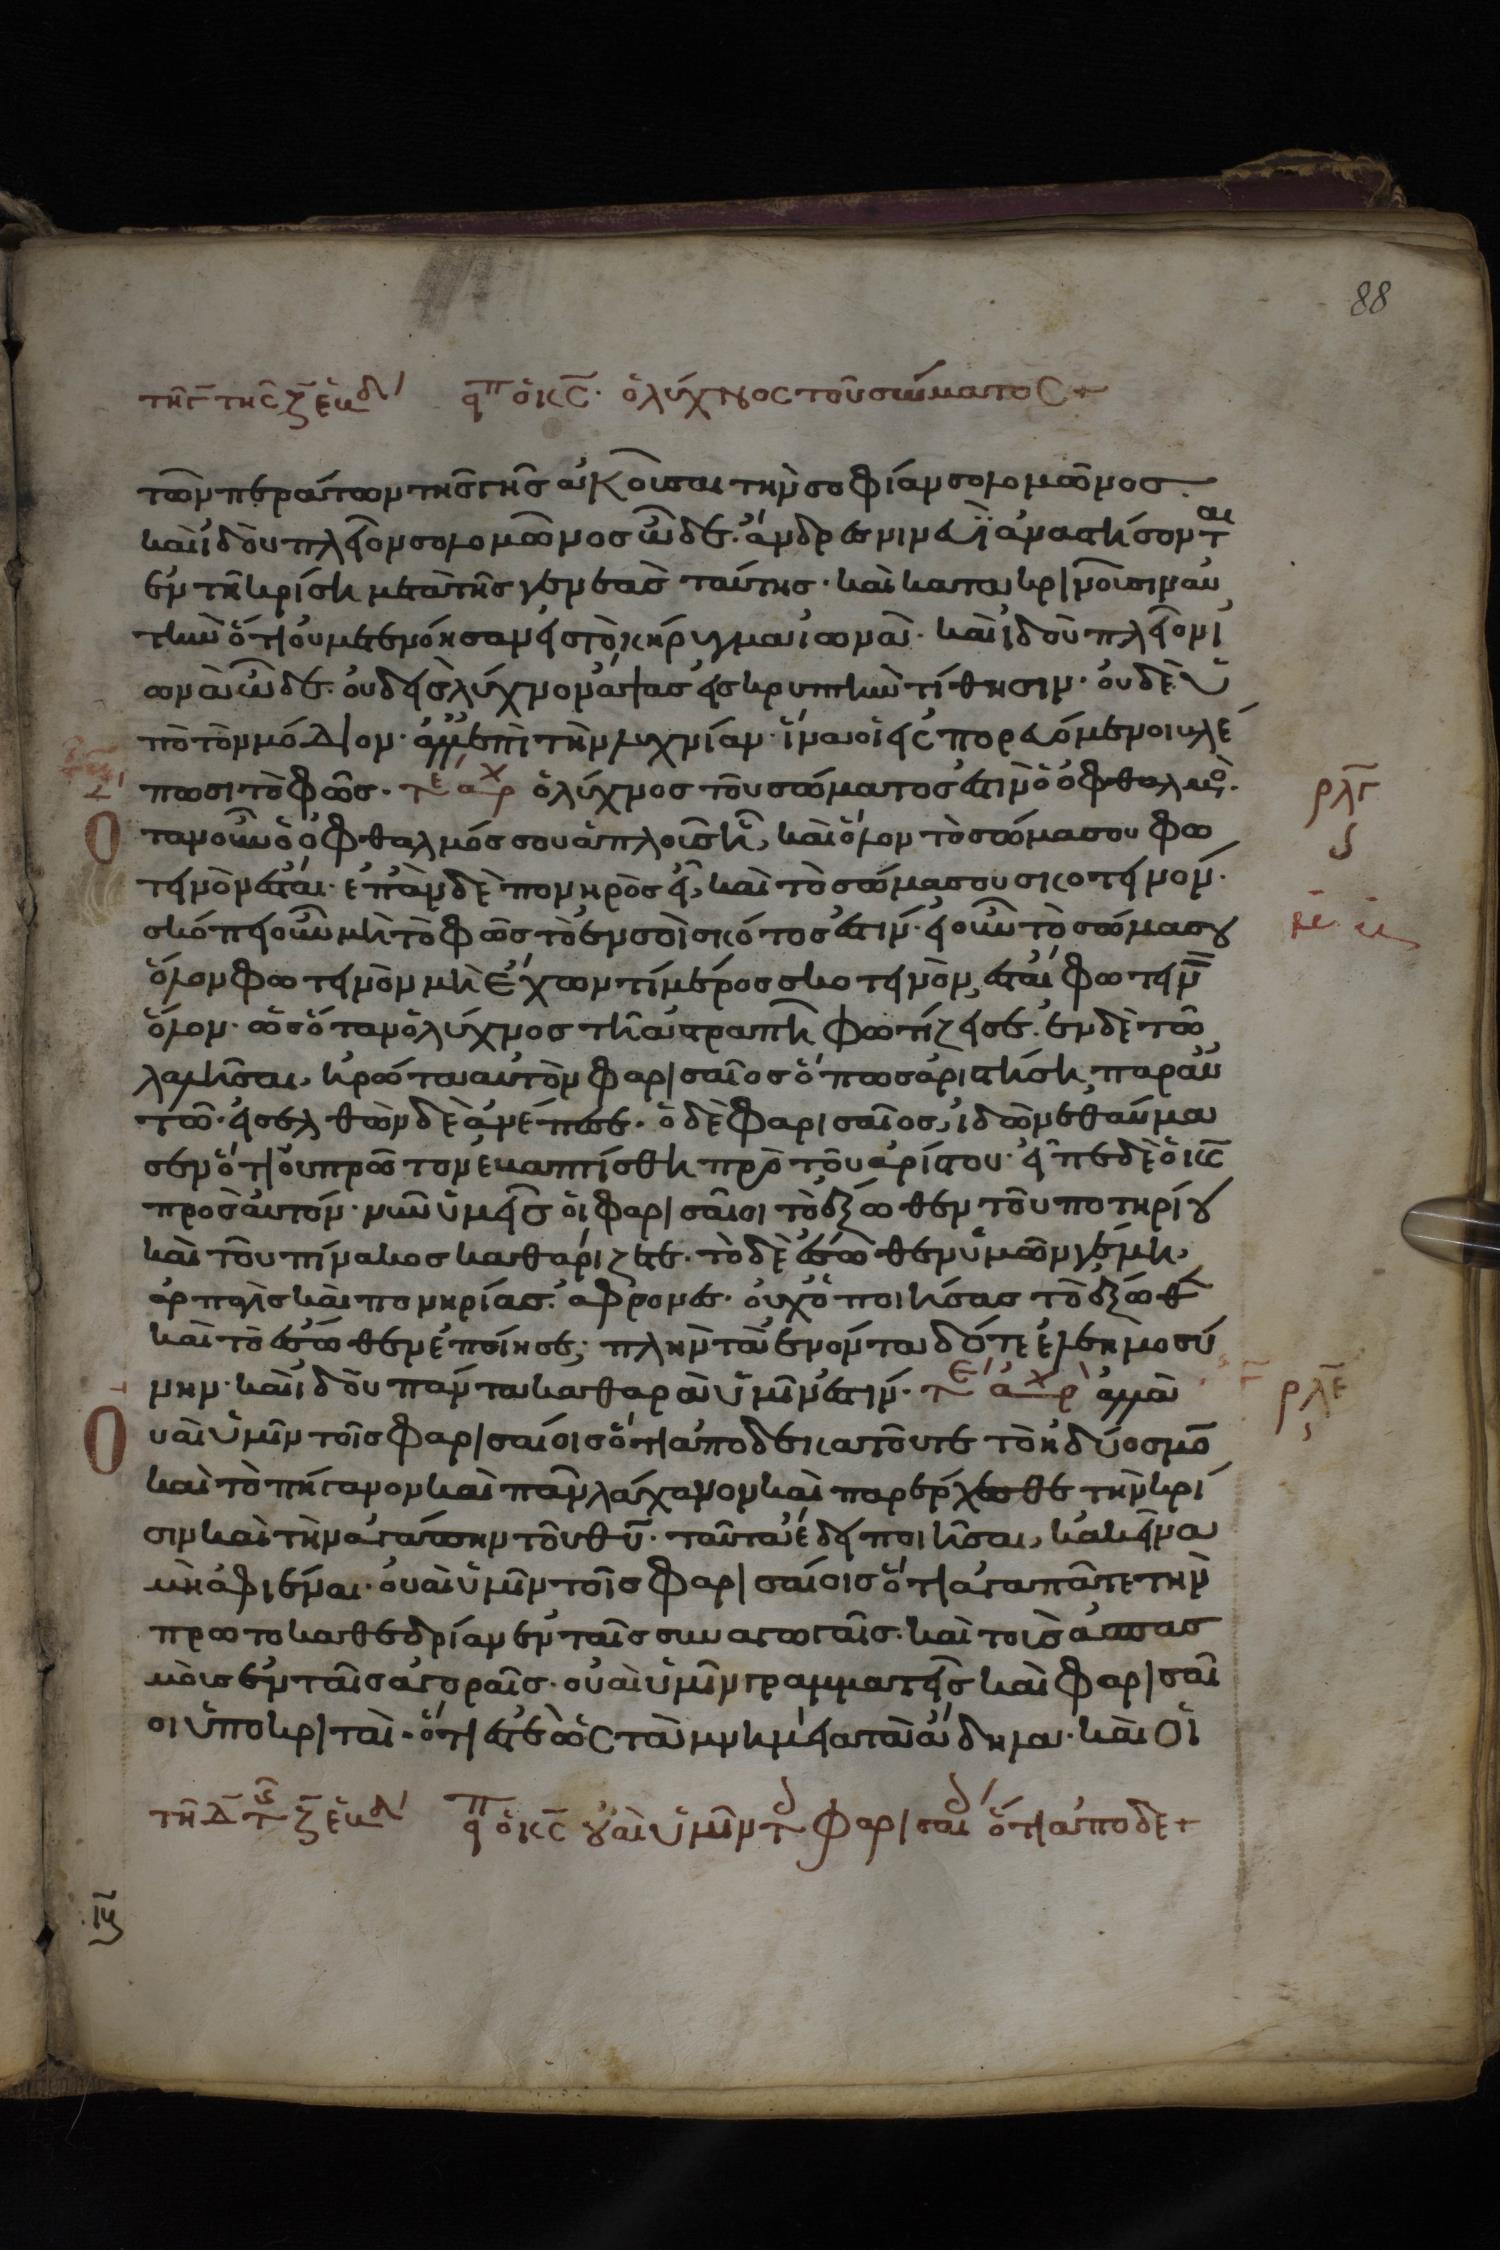 88
τῆ γ̅ τῆς ζ̅ ἑβδ εἶπ ὁ κ̅ς̅· ὁ λύχνος τοῦ σώματος +
τῶν περάτων τῆς γῆς ἀκοῦσαι τὴν σοφίαν σολομῶνος·
καὶ ἰδοὺ πλεῖον σολομῶνος ὧδε· ἄνδρες νινευῖ ἀναστήσονται
ἐν τῆ κρίσει μετὰ τῆς γενεᾶς ταύτης· καὶ κατακρινοῦσιν αὐ
τὴν ὅτι οὐ μετενόησαν εἰς τὸ κήρυγμα ἰωνᾶ· καὶ ἰδοὺ πλεῖον ἰ
ωνᾶ ὧδε· οὐδεὶς λύχνον ἅψας εἰς κρυπτὴν τίθησιν· οὐδὲ ὑ
πὸ τὸν μόδιον· ἀλλ' ἐπὶ τὴν λυχνίαν· ἵνα οἱ εἰσπορευόμενοι βλέ
πωσι τὸ φῶς· τε αρχ ὁ λύχνος τοῦ σώματός ἐστιν ὁ ὀφθαλμός· ρλγ
ὅταν οὖν ὁ ὀφθαλμός σου ἁπλοῦς ῆ, καὶ ὅλον τὸ σῶμα σου φω
τεινόν ἐσται· ἐπὰν δὲ πονηρὸς ῆ, καὶ τὸ σῶμα σου σκοτεινόν·
σκόπει οὖν μὴ τὸ φῶς τὸ ἐν σοὶ σκότος ἐστίν· εἰ οὖν τὸ σῶμα σου
ὅλον φωτεινὸν μὴ ἔχων τί μέρος σκοτεινὸν, ἔσται φωτειν
ὅλον· ὡς ὅταν ὁ λύχνος τῆ ἀστραπῆ φωτίζει σε· ἐν δὲ τῶ
λαλῆσαι, ἠρώτα αὐτὸν φαρισαῖος ὅπως ἀριστήση παρ' αὐ
τῶ· εἰσελθὼν δὲ ἀνέπεσε· ὁ δὲ φαρισαῖος, ἰδὼν ἐθαύμα
σεν ὅτι οὐ πρῶτον ἐβαπτίσθη πρὸ τοῦ ἀρίστου· εἶπε δὲ ὁ ι̅ς̅
πρὸς αὐτόν· νῦν ὑμεῖς οἱ φαρισαῖοι τὸ ἔξωθεν τοῦ ποτηρίου
καὶ τοῦ πίνακος καθαρίζετε· τὸ δὲ ἔσωθεν ὑμῶν γέμει,
ἁρπαγῆς καὶ πονηρίας· ἄφρονες· οὐχ ὁ ποιήσας τὸ ἔξωθ
καὶ τὸ ἔσωθεν ἐποίησε; πλὴν τὰ ἐνόντα δότε ἐλεημοσύ
νην· καὶ ἰδοὺ πάντα καθαρὰ ὑμῖν ἐστιν· τε αρχ ἀλλὰ ρλε
οὐαὶ ὑμῖν τοῖς φαρισαίοις ὅτι ἀποδεκατοῦτε τὸ ἡδύοσμο
καὶ τὸ πήγανον καὶ πᾶν λάχανον καὶ παρέρχεσθε τὴν κρί
σιν καὶ τὴν ἀγάπην τοῦ θ̅υ̅· ταῦτα ἔδει ποιῆσαι, κακεῖνα
μὴ ἀφιέναι· οὐαὶ ὑμῖν τοῖς φαρισαίοις ὅτι ἀγαπᾶτε τὴν
πρωτοκαθεδρίαν ἐν ταῖς συναγωγαῖς· καὶ τοὺς ἀσπασ
μοὺς ἐν ταῖς ἀγοραῖς· οὐαὶ ὑμῖν γραμματεῖς καὶ φαρισαῖ
οι ὑποκριταί· ὅτι ἐστὲ ὡς τὰ μνημεῖα τὰ ἄδηλα· καὶ οἱ
τῆ δ̅ τ ζ̅ ἑβδ εἶπ ὁ κ̅ς̅ οὐαὶ ὑμῖν τ φαρισαι ὅτι ἀποδε +